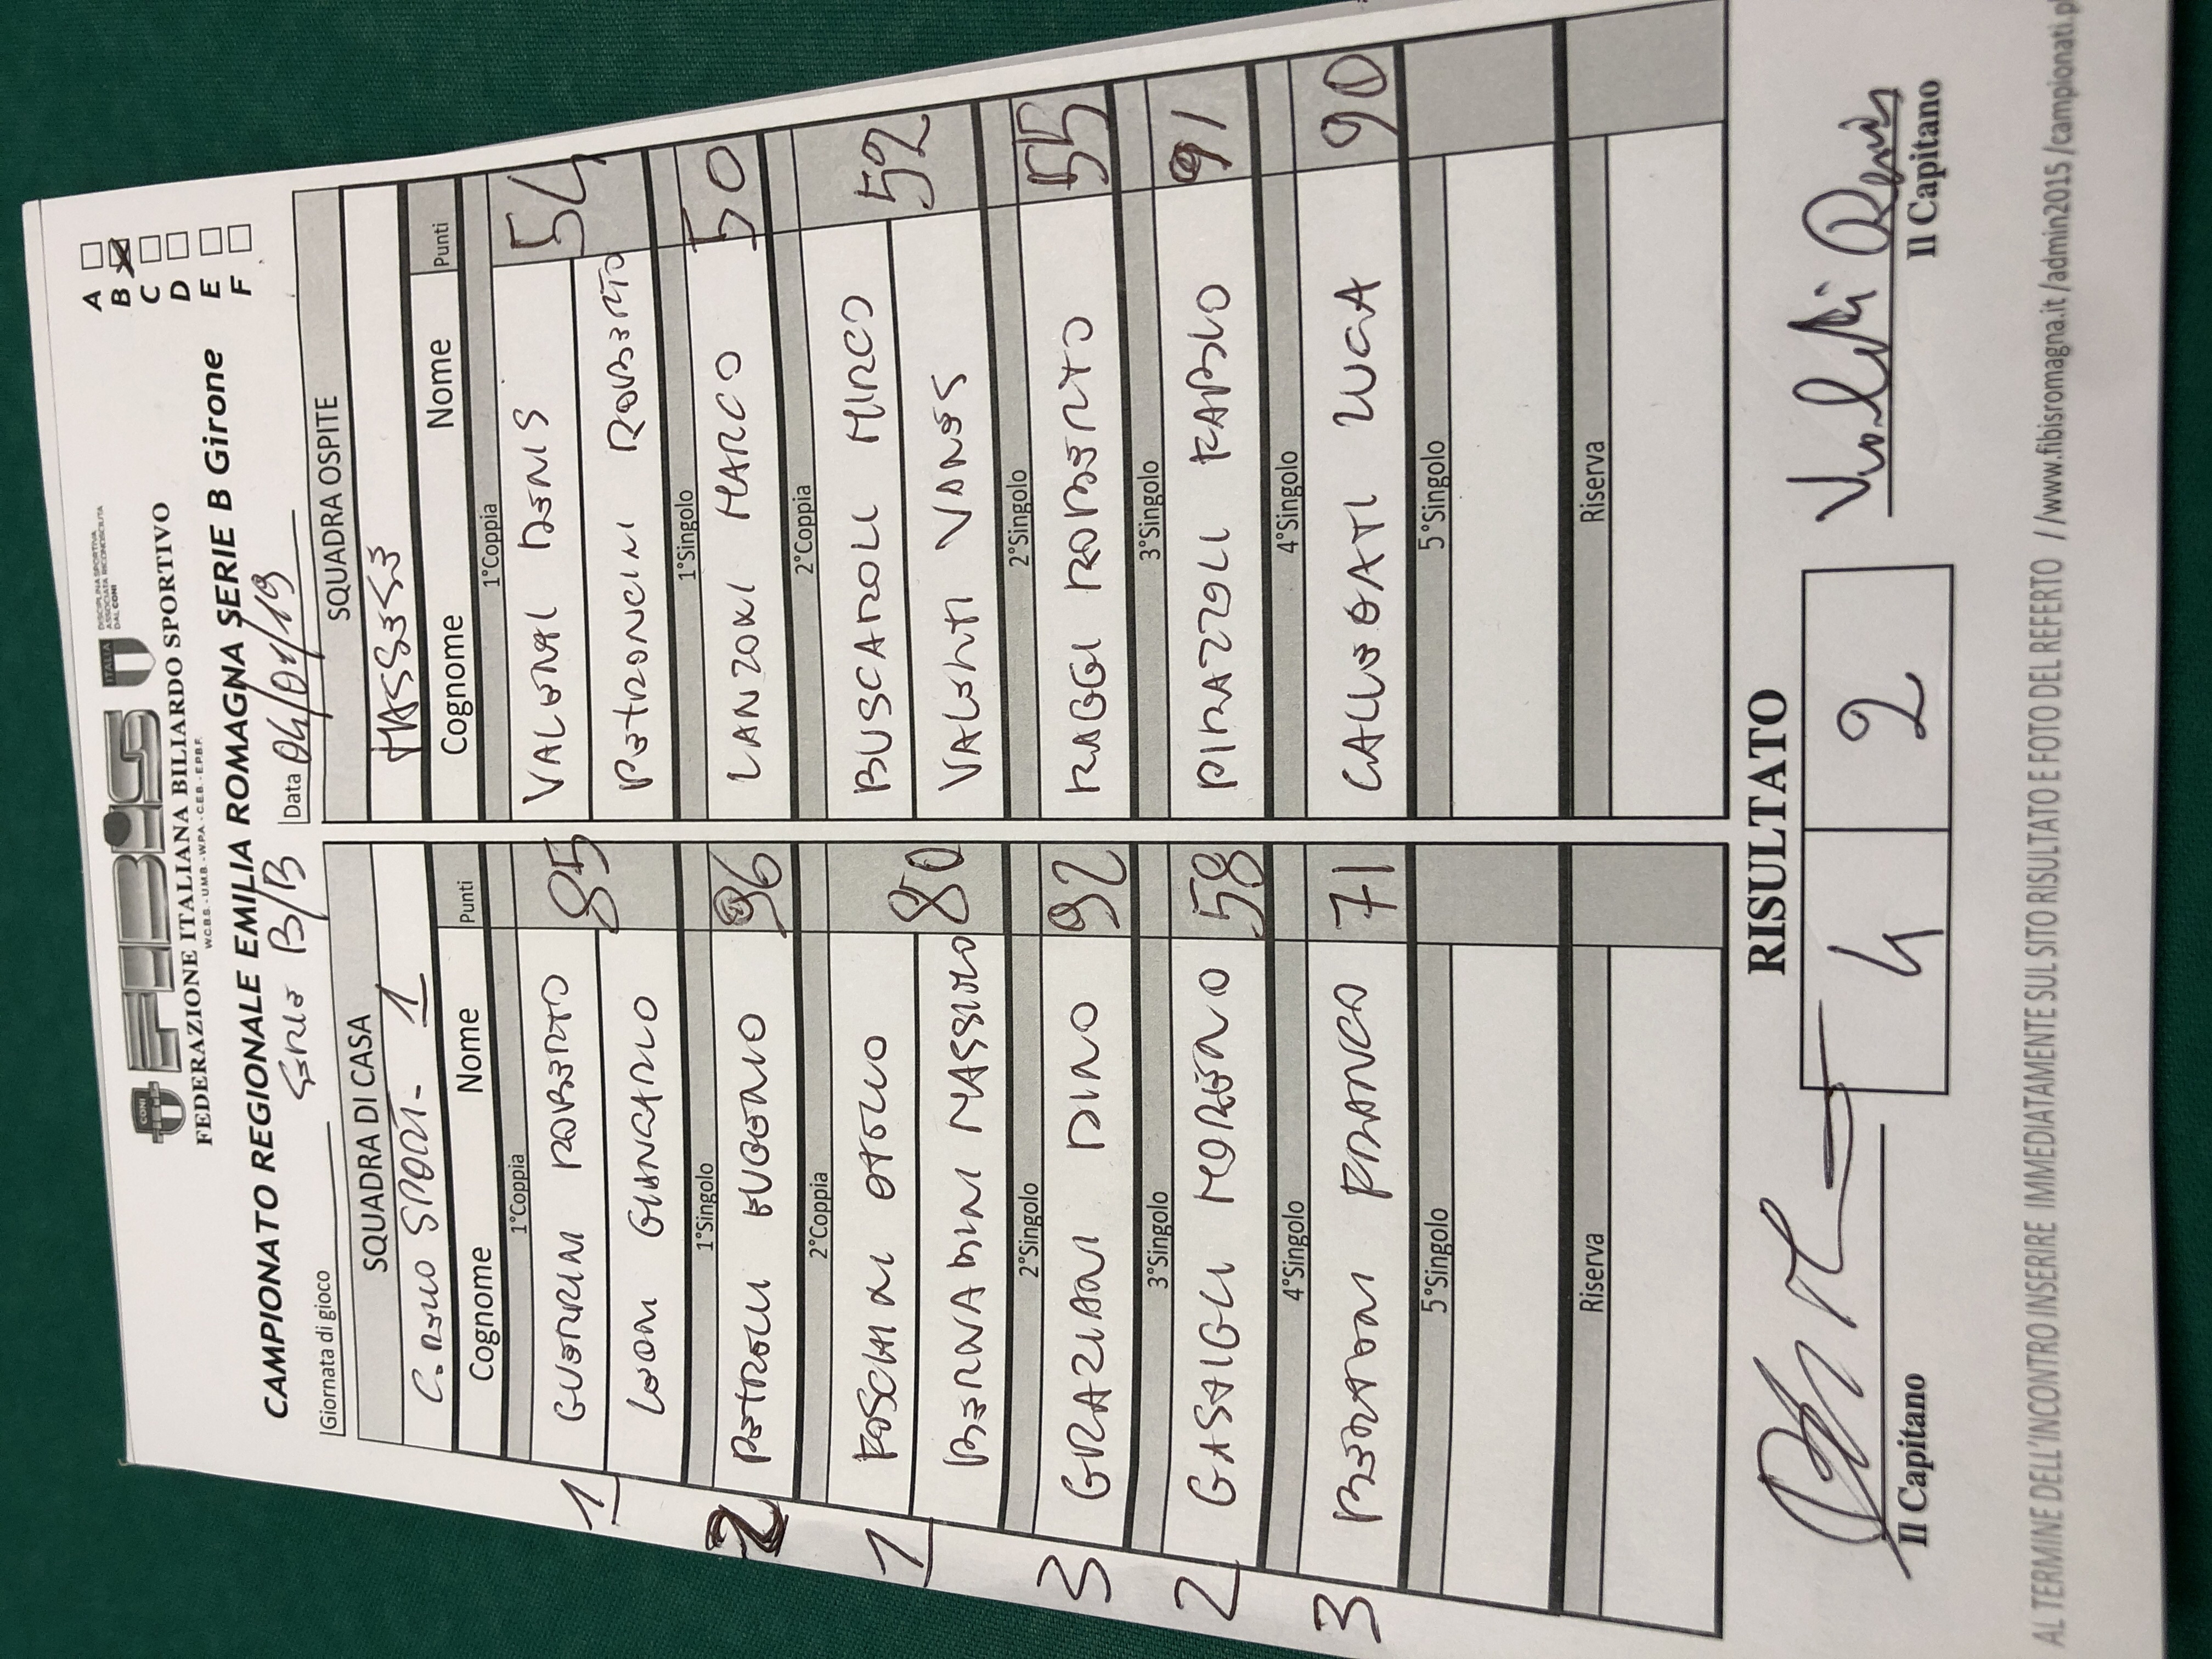 CONI FIBiS ITALIA DISCIPLINA SPORTIVA ASSOCIATA RICONOSCIUTA DAL CONI
FEDERAZIONE ITALIANA BILIARDO SPORTIVO
W.C.B.S. - U.M.B. - W.P.A. - C.E.B. - E.P.B.F.
CAMPIONATO REGIONALE EMILIA ROMAGNA SERIE B Girone
A
B
C
D
E
F
Giornata di gioco B/B Data 04/01/19
SQUADRA DI CASA SQUADRA OSPITE
SPORT. 1 MASSESE
Cognome Nome Punti Cognome Nome Punti
1°Coppia 1°Coppia
1 GUERRINI ROBERTO 85 VALGIMI DENIS 54
LEONI GIANCARLO PETRONCINI ROBERTO
1°Singolo 1°Singolo
2 PETROLLI EUGENIO 96 LANZONI MARCO 50
2°Coppia 2°Coppia
1 FOSCHINI OTELLO 80 BUSCAROLI MIRCO 52
BERNABINI MASSIMO VALENTI VANES
2°Singolo 2°Singolo
3 GRAZIANI DINO 92 RAGGI ROBERTO 55
3°Singolo 3°Singolo
2 GASAIGLI MORENO 58 PIRAZZOLI FABIO 91
4°Singolo 4°Singolo
3 BERTONI FRANCO 71 CALLEGATI LUCA 90
5°Singolo 5°Singolo
Riserva Riserva
RISULTATO
4 2
Il Capitano Il Capitano
AL TERMINE DELL'INCONTRO INSERIRE IMMEDIATAMENTE SUL SITO RISULTATO E FOTO DEL REFERTO //www.fibisromagna.it/admin2015/campionati.p